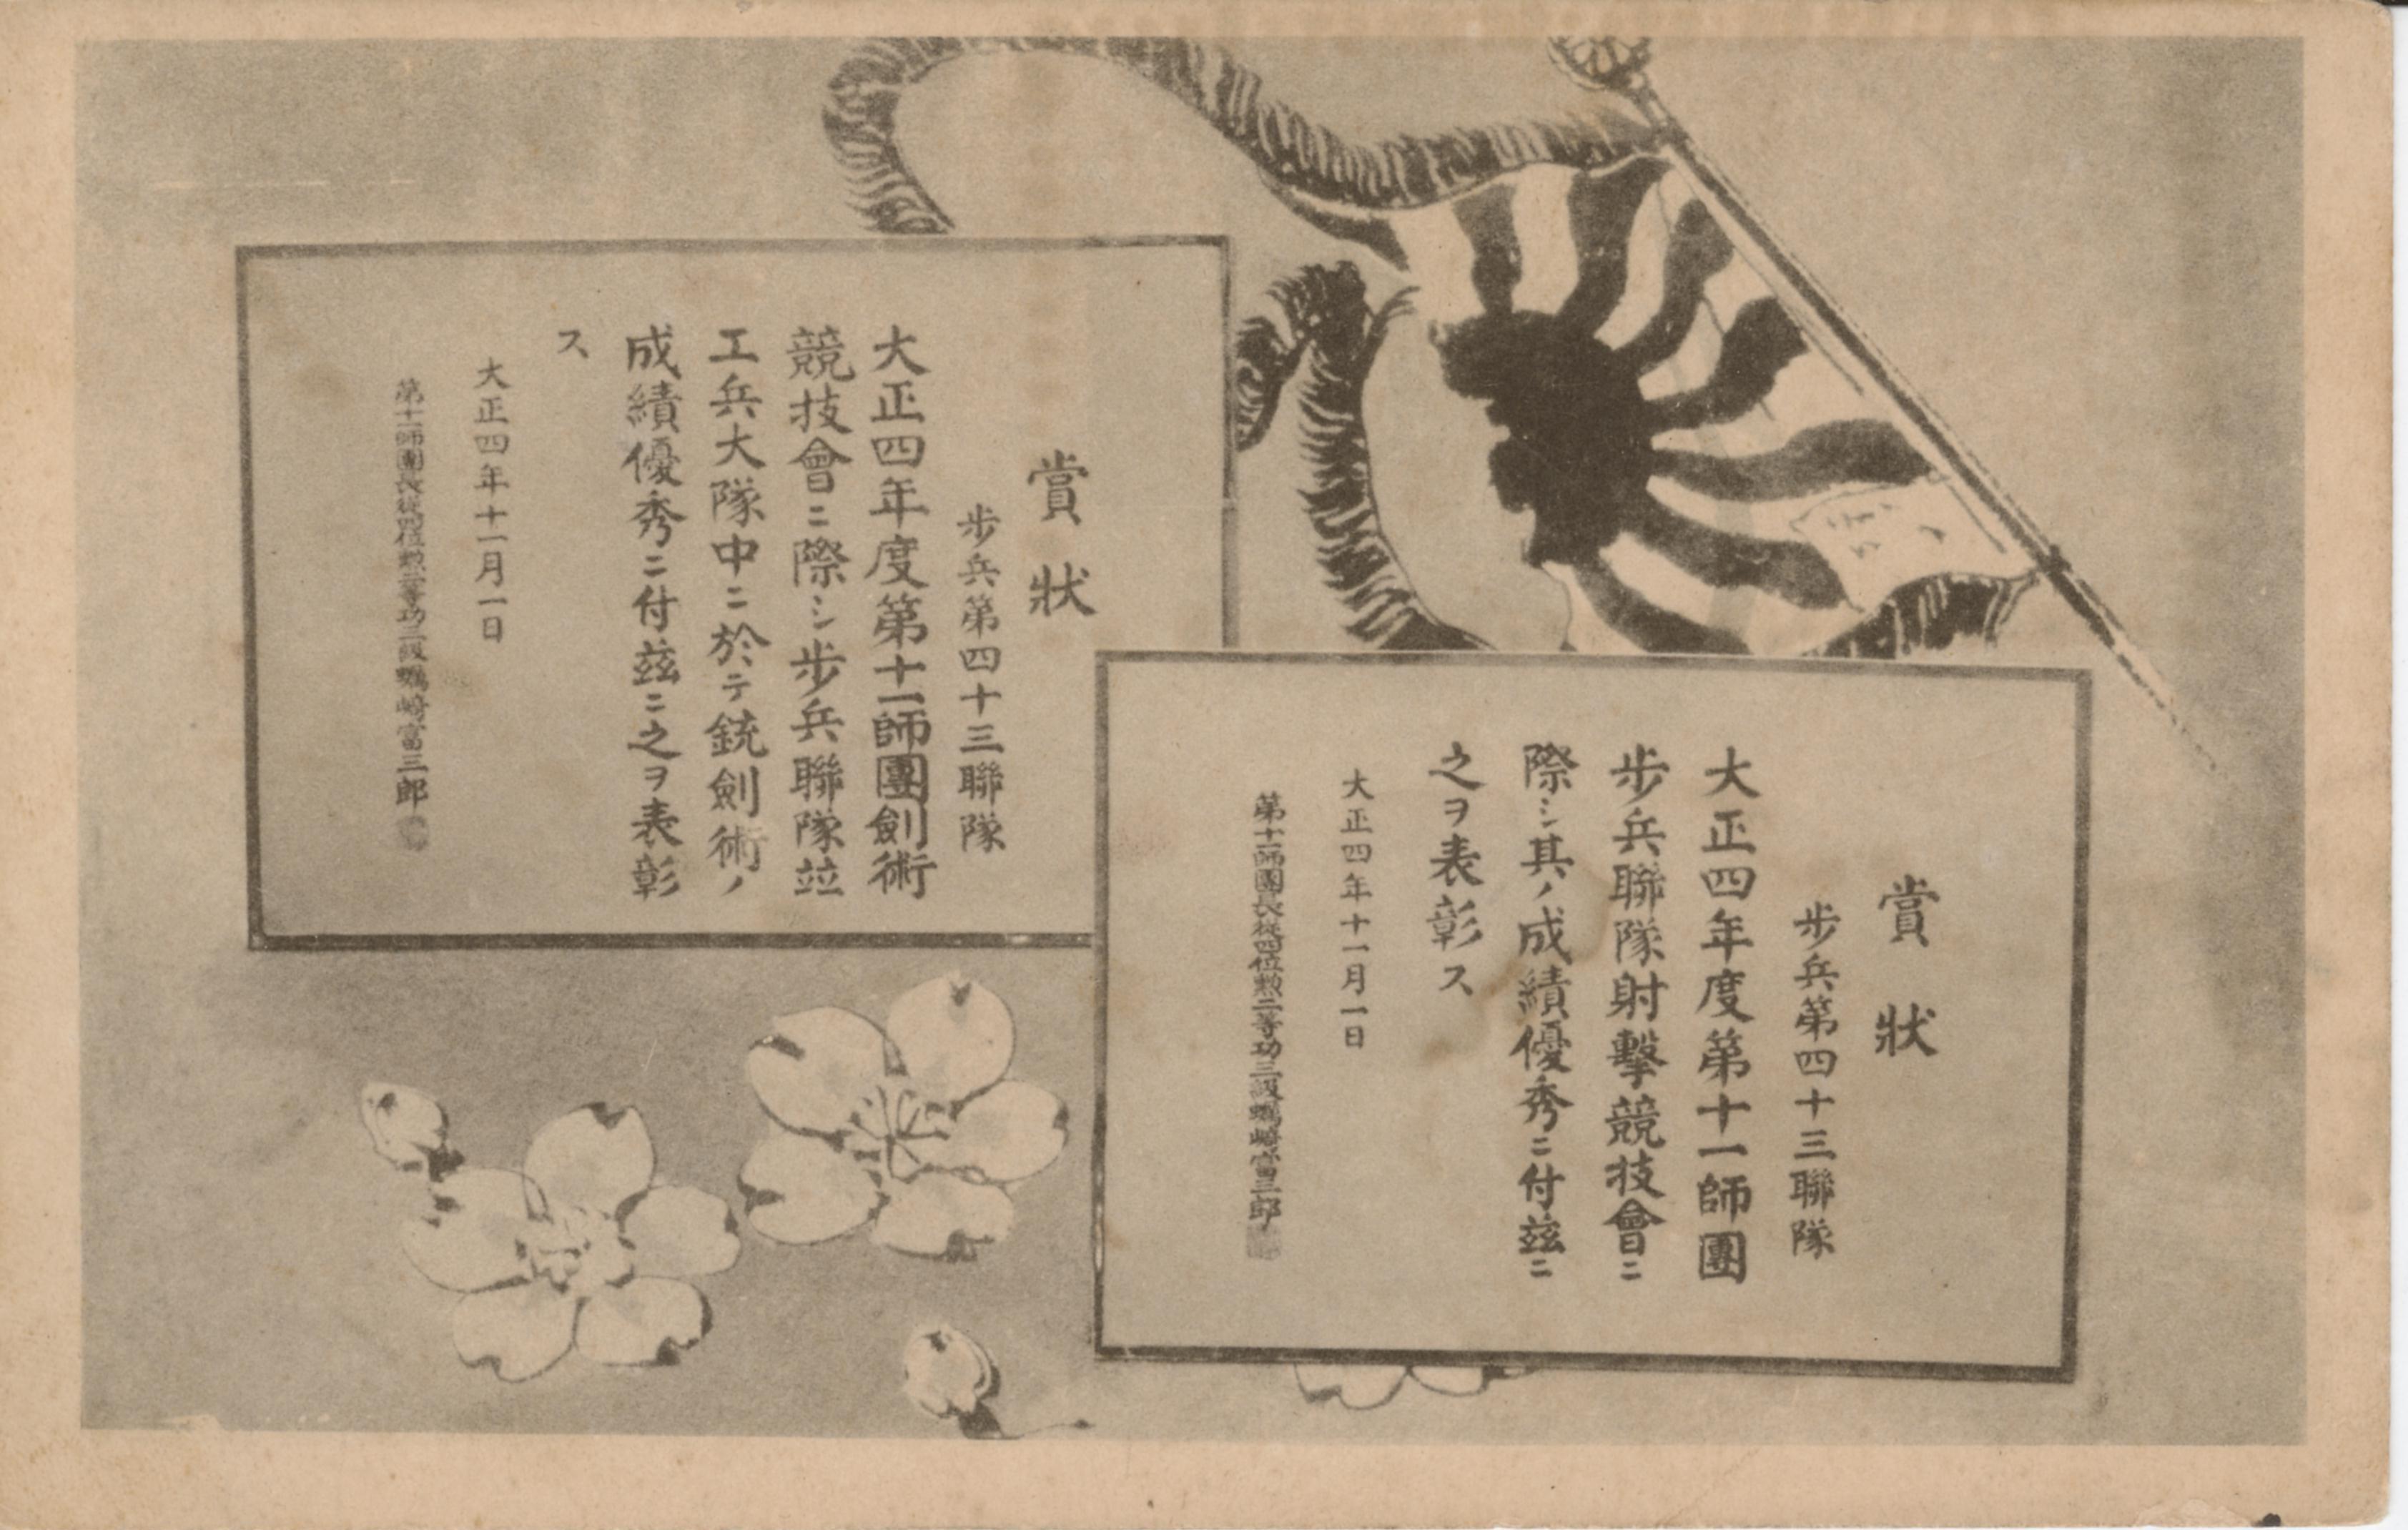 賞狀
步兵第四十三聯隊
大正四年度第十一師團
步兵聯隊射擊競技會ニ
際シ其ノ成績優秀ニ付茲ニ
之ヲ表彰ス
大正四年十一月一日
第十一師團長從四位勲二等功三級蠣崎富三郎
賞狀
步兵第四十三聯隊
大正四年度第十一師團劍術
競技會ニ際シ步兵聯隊竝
工兵大隊中ニ於テ銃劍術ノ
成績優秀ニ付茲ニ之ヲ表彰
ス
大正四年十一月一日
第十一師團長從四位勲二等功三級蠣崎富三郎